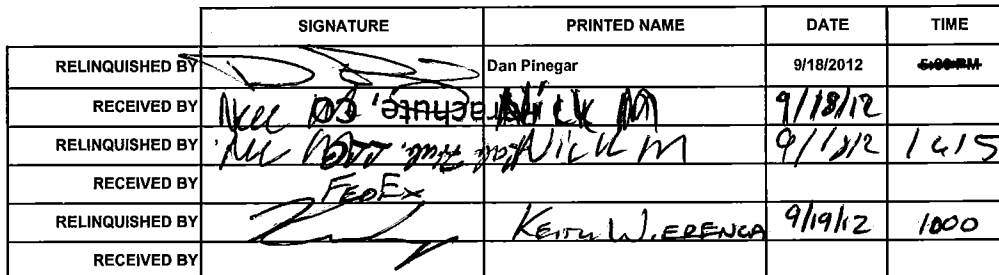 SIGNATURE PRINTED NAME DATE TIME
RELINQUISHED BY Dan Pinegar 9/18/2012 5:00 PM
RECEIVED BY Parachute, CO Nick M 9/18/12
RELINQUISHED BY Nick M 9/18/12 1615
RECEIVED BY FEDEX
RELINQUISHED BY KEITH WIERENGA 9/19/12 1000
RECEIVED BY